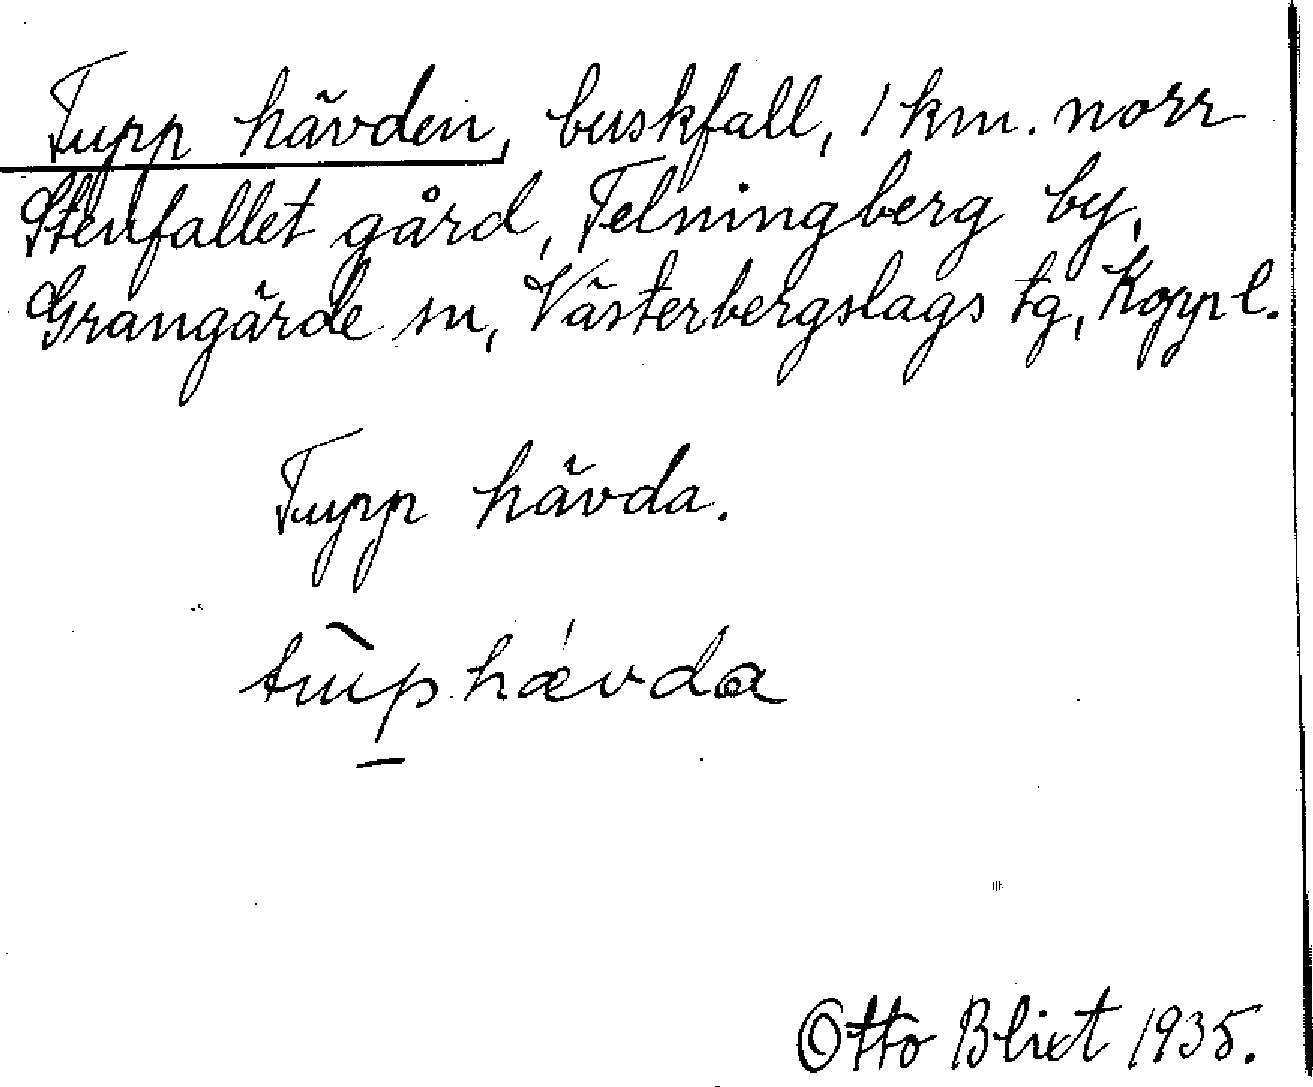 Tupp hävden, buskfall, 1 km. norr
Stenfallet gård, Telningberg by,
Grangärde sn, Västerbergslags tg, Koppl.
Tupp hävda.
tùp hǽvda
Otto Blixt 1935.